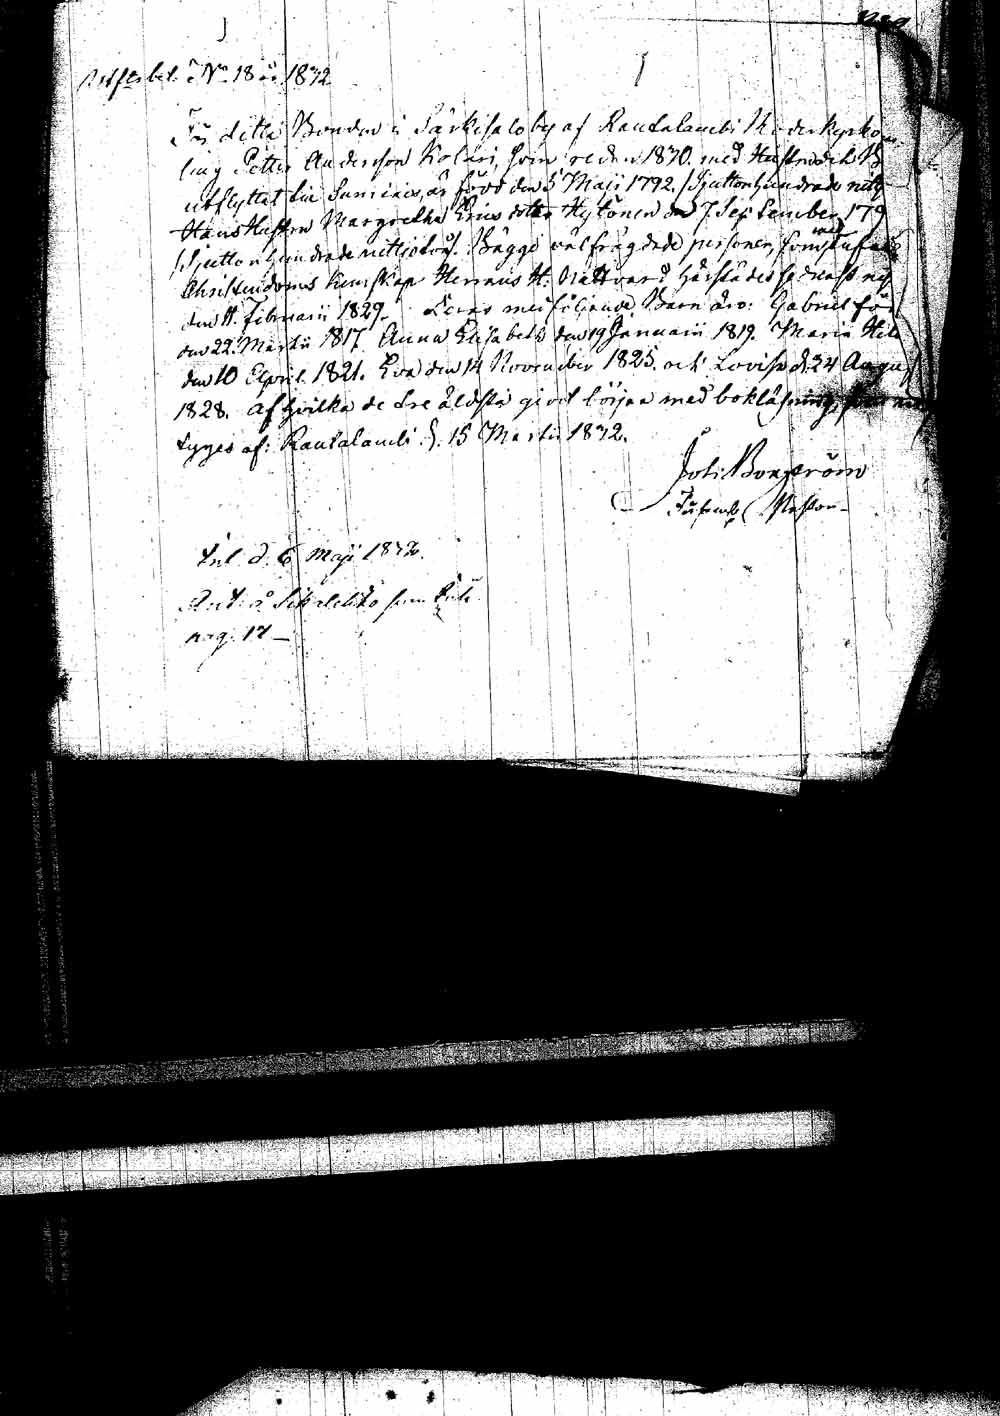 Attest bet. N:o 18 år 1832
Bonden i Särkisalo by af Rautalambi Moderkyrko
Petter Andersson Kolari, som redan 1830. med Hustru och B
utflyttat till Sumiais, är född den 5 Maji 1792. /Sjuttonhundrade nitti
Hans Hustru Margretha Ericsdotter Hytönen den 7 September 179
/Sjuttonhundrade nittiotvå/. Bägge välfrägdade personer, som med
Christendoms kunskap Herrans H. Nattvard härstädes sednast
den 11. Februarii 1829. Deras medföljande Barn äro: Gabriel föd
den 22. Martii 1817. Anna Elisabeth den 19 Januarii 1819. Maria Hele
den 10 April 1821. Eva den 14 November 1825. och Lovisa d. 24 Augu
1828. Af hvilka de tre äldsta gjort början med bokläsning,
tyges af: Rautalambi d. 15 Martii 1832.
Joh: Borgström
Pastor
Inl. d. 6 Maji 1832.
pag. 17